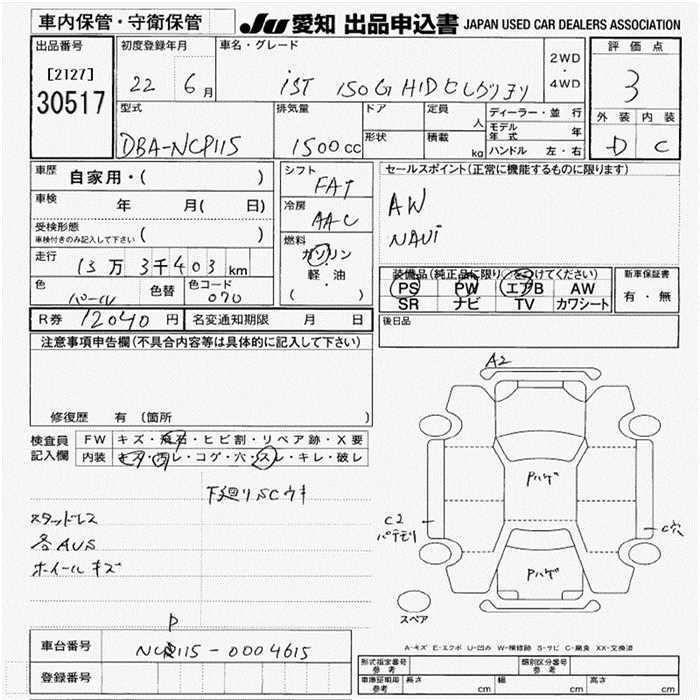 車内保管・守衛保管
JU 愛知 出品申込書 JAPAN USED CAR DEALERS ASSOCIATION
出品番号
[2127]
30517
初度登録年月
22 6月
車名・グレード
iST 150G HID
2WD
・
4WD
評価点
3
外装 内装
D C
型式
DBA-NCP115
排気量
1500cc
ドア
形状
定員 人
積載 kg
ディーラー・並行
モデル年式 年
ハンドル 左・右
車歴
自家用・( )
車検
年 月( 日)
受検形態
車検付きのみ記入して下さい ( )
走行
13万3千403km
色
パール
色替
色コード
070
シフト
FAT
冷房
AAC
燃料
ガソリン
・
軽・油
( )
セールスポイント(正常に機能するものに限ります)
AW
NAVi
装備品(純正品に限り○をつけてください)
PS PW エアB AW
SR ナビ TV カワシート
新車保証書
有・無
R券 12040円
名変通知期限 月 日
後日品
注意事項申告欄(不具合内容等は具体的に記入して下さい)
修復歴 有 (箇所 )
検査員
記入欄
FW キズ・飛石・ヒビ割・リペア跡・X要
内装 キズ・汚レ・コゲ・穴・スレ・キレ・破レ
下廻りSCウキ
スタッドレス
各AUS
ホイールキズ
A2
Pハゲ
C2
パテモリ
C穴
Pハゲ
スペア
A-キズ E-エクボ U-凹み W-補修跡 S-サビ C-腐食 XX-交換済
車台番号
NCP115-0004615
登録番号
形式指定番号
参考
類別区分番号
参考
車庫証明用
参考
長さ cm
幅 cm
高さ cm